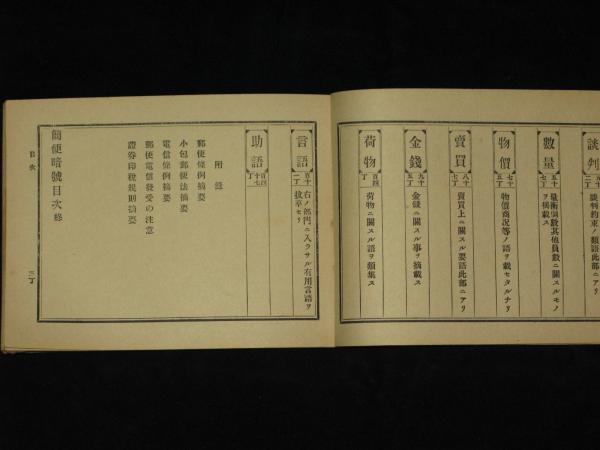 談判
談判約束ノ類語此部ニアリ
數量
七十丁
量衡個數其他員數ニ關スルモノヲ摘載ス
物價
七十五丁
物價商況等ノ語ヲ載セタルナリ
賣買
八十一丁
賣買上ニ關スル要語此部ニアリ
金錢
九十五丁
金錢ニ關スル事ヲ摘載ス
荷物
百四丁
荷物ニ關スル語ヲ類集ス
言語
百十一丁
右ノ部門ニ入ラサル有用言語ヲ拔萃セリ
助語
百四十七丁
附錄
郵便條例摘要
小包郵便法摘要
電信條例摘要
郵便電信發受の注意
證券印稅規則摘要
簡便暗號目次終
目次
三丁